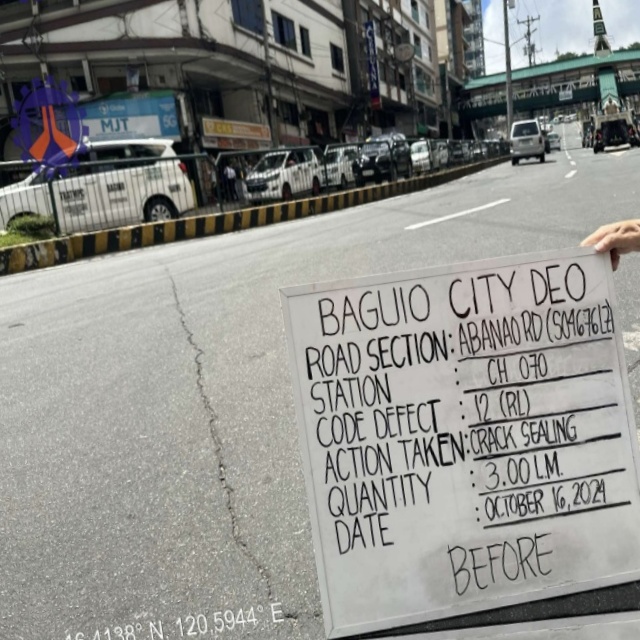 MJT
BAGUIO CITY DEO
ROAD SECTION: ABANAO RD (S04676LZ)
STATION : CH 070
CODE DEFECT : 12 (RL)
ACTION TAKEN: CRACK SEALING
QUANTITY : 3.00 L.M.
DATE : OCTOBER 16, 2024
BEFORE
16.4138° N, 120.5944° E